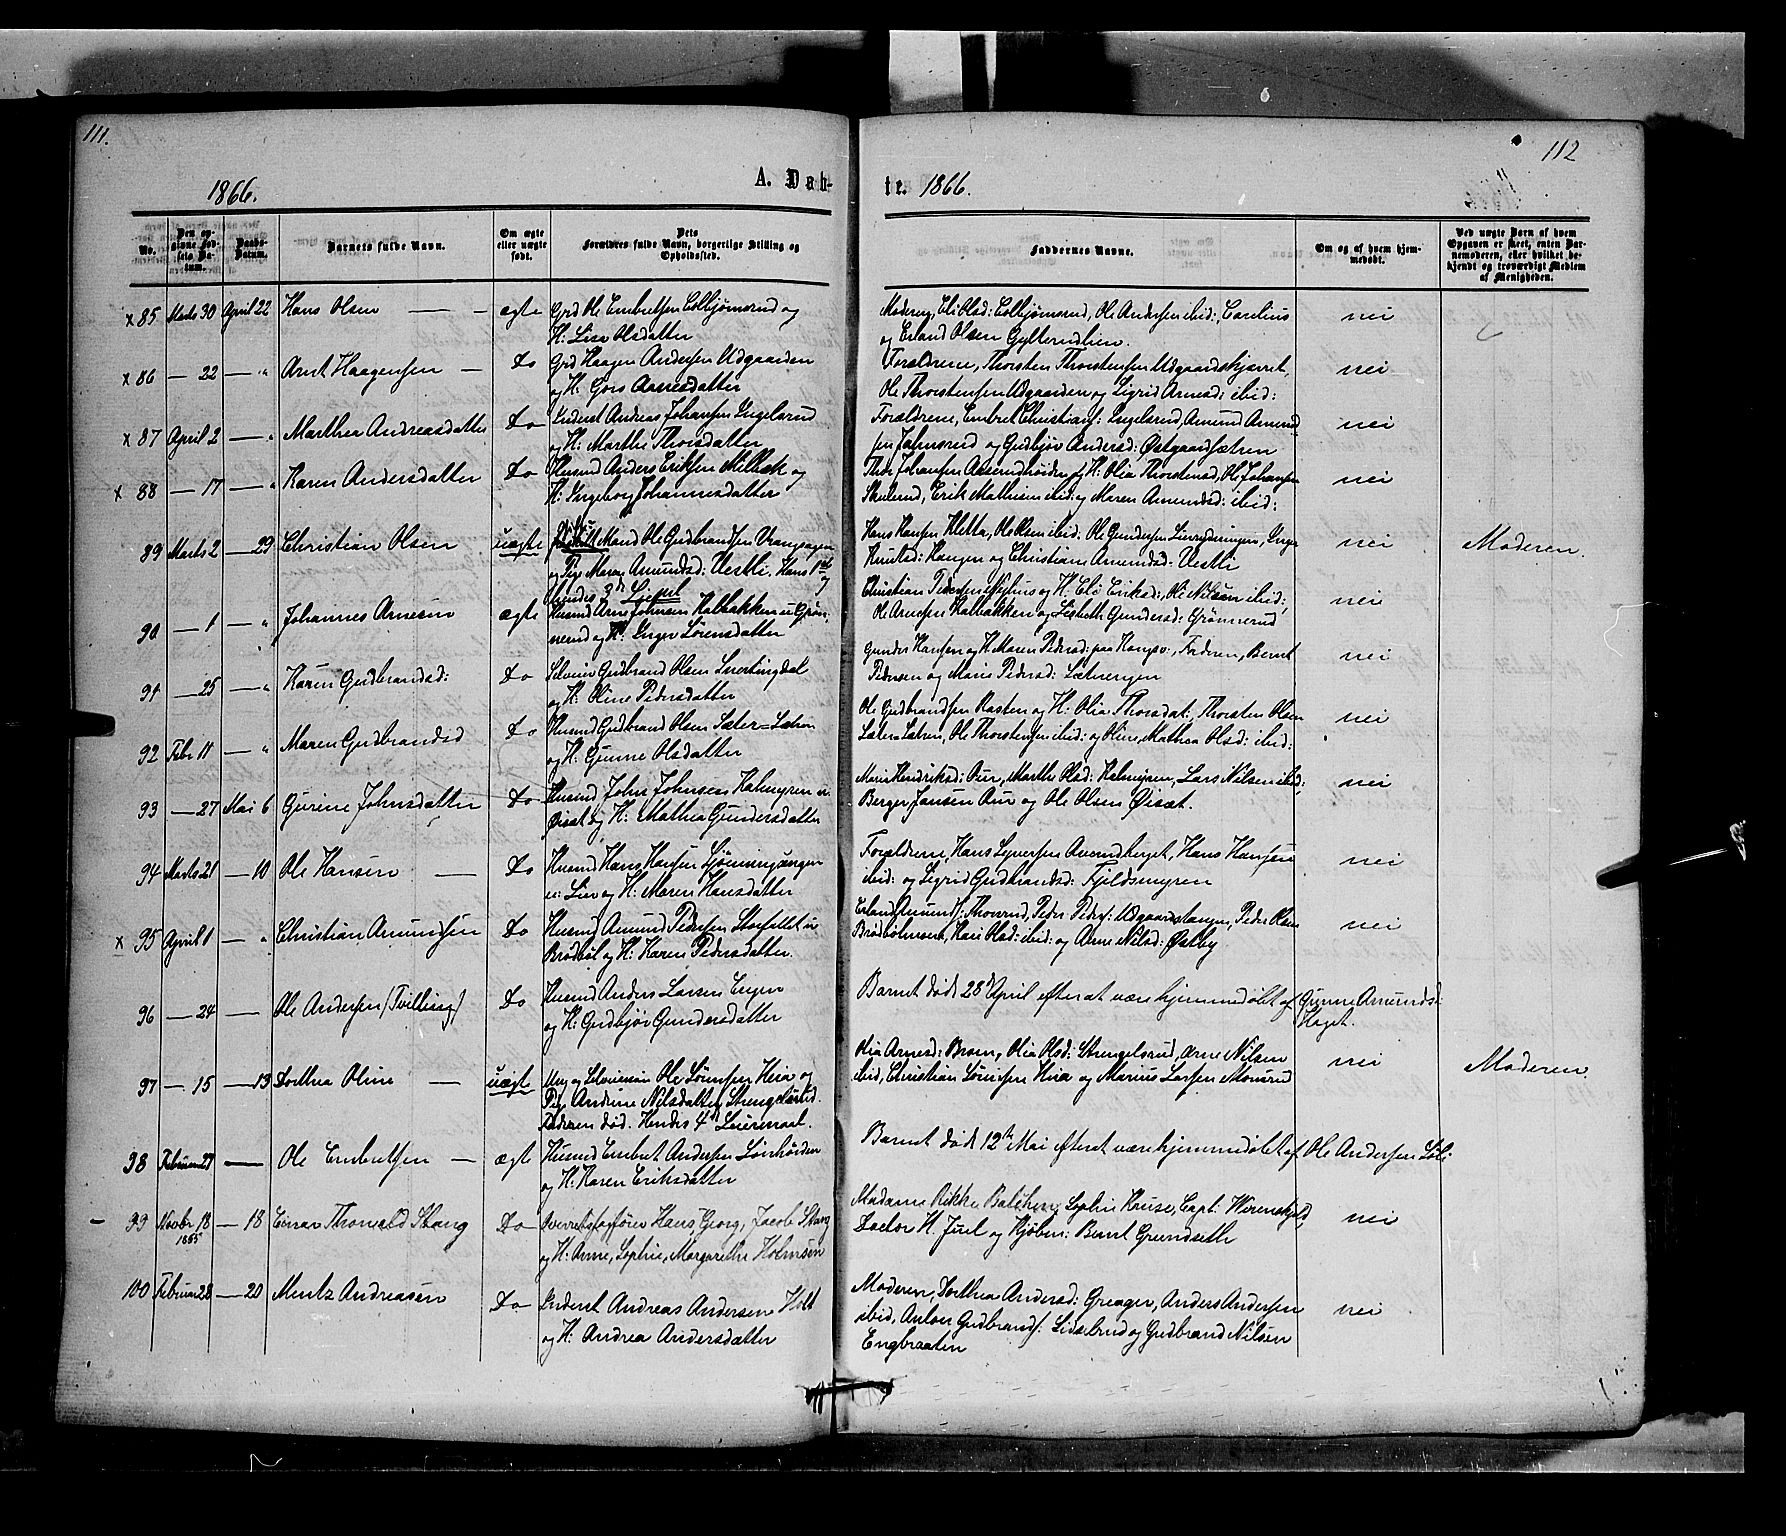 111.
112
1866.
A. Døb-
te. 1866.
No.
Den opgivne Fødsels Datum.
Daabs-Datum.
Barnets fulde Navn.
Om ægte eller uægte født.
Dets Forældres fulde Navn, borgerlige Stilling og Opholdssted.
Faddernes Navne.
Om og af hvem hjemmedøbt.
Ved uægte Børn af hvem Opgaven er skeet, enten Barnemoderen, eller hvilket bekjendt og troværdigt Medlem af Menigheden.
x 85 Marts 30 April 22 Hans Olsen — ægte Grd Ole Embretsen og
H: Lise Olsdatter
Ole Andersen ibid:,
og Erland Olsen
nei
x 86 — 22 — " Arnt Haagensen — Do Grd Haagen Andersen Udgaarden
og H: Arnesdatter
Forældrene, Thorsten Thorstensen
Ole Thorstensen Udgaarden og Sigrid Arnesd: ibid:
nei
x 87 April 2 — " Marthea Andreasdatter Do Inderst Andreas Johansen Ingelsrud
og H: Marthe Thorsdatter
Forældrene, Embret Ingelsrud, Amund
og Gudbjør Andersd:
nei
x 88 — 17 — " Karen Andersdatter Do Husmd Anders Eriksen Melbak og
H: Ingeborg Johannesdatter
Thor Johansen og H: Olia Thorstensd, Ole Johansen
Skulerud, Erik Mathisen ibid: og Maren Amundsd: ibid:
nei
89 Marts 2 — 29 Christian Olsen uægte Mand Ole Gudbrandsen
og Pige Maren Amundsd: Vestli. Hans 1ste og
hendes 3d
Hans Hansen Kletta, Ole Olsen ibid: Ole Gundersen Inger
Knutsd: Haugen og Christiane Amundsd: Vestli
nei
Moderen.
90 — 1 — " Johannes Arnesen ægte Husmd Arne Johnsen Kalbakken u. Grøn-
nerud og H: Inger Sørensdatter
Christian Pedersen og H: Eriksd:, Ole Nilsen ibid:,
Ole Arnesen Kalbakken og Lisbeth Gundersd: Grønnerud
nei
91 — 25 — " Karen Gudbrandsd: Do Selveier Gudbrand Olsen
og H: Oline Pedersdatter
Gunder Hansen og H: Maren Pedersd: paa Kongsv:, Faderen, Bernt
Pedersen og Marie Pedersd:
nei
92 Febr 11 — " Maren Gudbrandsd Do Husmd Gudbrand Olsen Sæter-
og H: Gunne Olsdatter
Ole Gudbrandsen Rasten og H: Olia Thorsdat:, Thorsten Olsen
Ole Thorstensen ibid: og Oline Mathea Olsd: ibid:
nei
93 — 27 Mai 6 Gurine Johnsdatter Do Husmd John Johnsen u.
Øisæt og H: Mathea Gundersdatter
Marie Hendriksd: Aur, Marthe Olsd: Lars Nilsen ibid:
Berger Jansen Aur og Ole Olsen Øisæt.
nei
94 Marts 21 — 10 Ole Hansen — Do Husmd Hans Hansen
u: Lier og H: Maren Hansdatter
Forældrene, Hans Syversen Hans Hansen
ibid: og Sigrid Gudbrandsd: Fjeldsmyren
nei
x 95 April 1 — " Christian Amundsen Do Husmd Amund Pedersen u
Brødbøl og H: Karen Pedersdatter.
Erland Peder Peders: Udgaardstangen, Peder Olsen
Kari Olsd: ibid: og Arne Nilsd: Østby
nei
96 — 24 — Ole Andersen /Tvilling/ Do Husmd Anders Larsen Engen
og H: Gudbjør Gundersdatter
Barnet døde 28de April efter at være hjemmedøbt af Gunne Amundsd:
Haget.
97 — 15 — 13 Dorthea Oline — uægte Ung og Selveiersøn Ole Sørensen Heia og
Pige Andrine Nilsdatter Strengelsrud.
Faderen død. Hendes 4de Leiermaal.
Olia Arnesd: Broen, Olia Olsd: Strengelsrud, Arne Nilsen
ibid, Christian Sørensen Heia og Marius Larsen
nei
Moderen.
98 Februar 27 — Ole Embretsen — ægte Husmd Embret Andersen
og H: Karen Eriksdatter
Barnet døde 12te Mai efter at være hjemmedøbt af Ole Andersen
– 99 Novbr 18 1865 — 18 Einar Thorvald Stang Do Overretssagfører Hans, Georg, Jacob Stang
og H: Anne, Sophie, Margarethe Holmsen
Madame Rikke Balchen, Sophie Capt: Werenskjold
Doctor H. Juel og Kjøbm: Bernt Grundseth
nei
100 Februar 28 — 20 Mentz Andreasen Do Inderst Andreas Andersen Holt
og H: Andrea Andersdatter
Moderen, Dorthea Andersd: Greager, Anders Andersen
ibid, Anton Gudbrands: og Gudbrand Nilsen
Engbraaten
nei